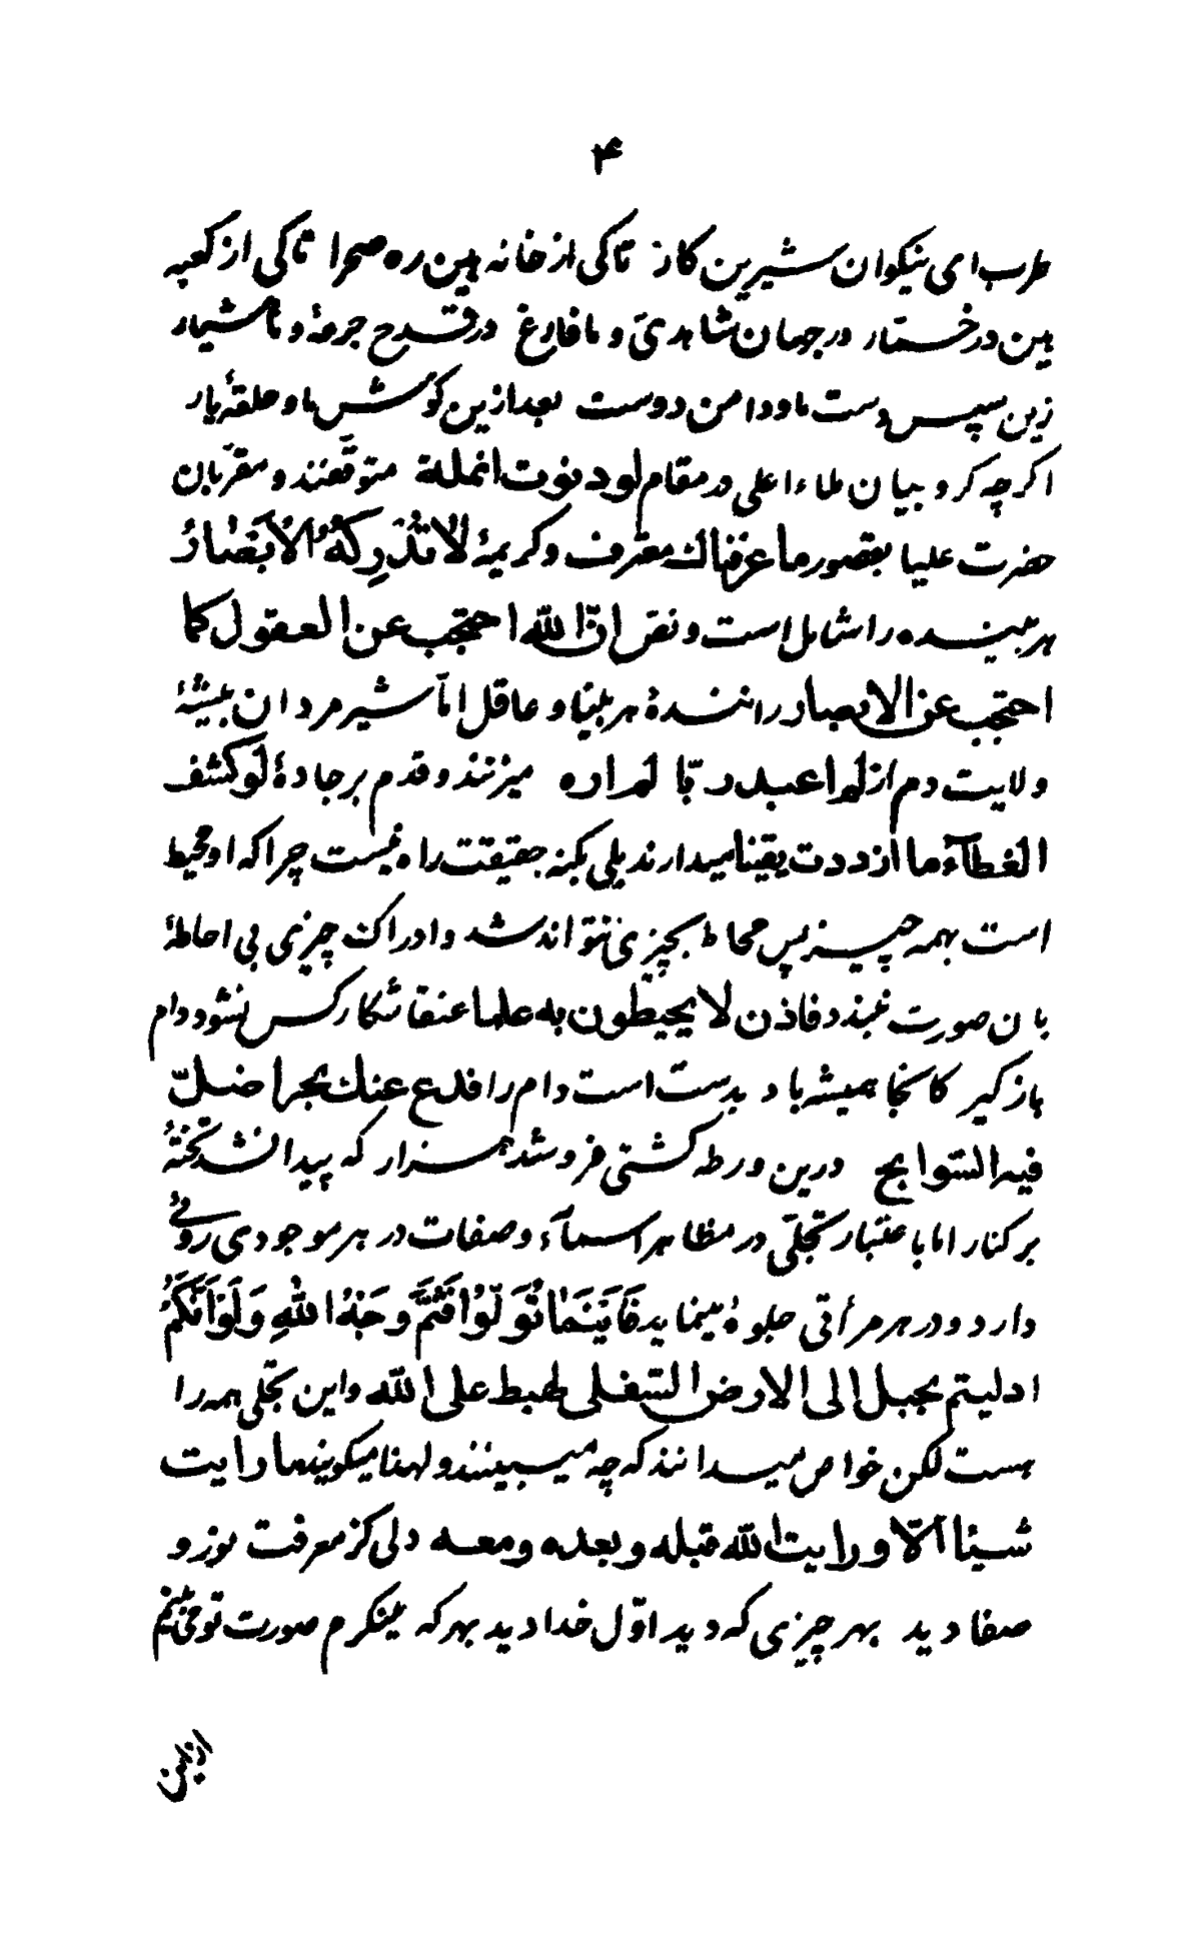 ۴
طرب ای نیکوان شیرین کار تا کی از خانه هین ره صحرا تا کی از کعبه
هین در خمار در جهان شاهدی و ما فارغ در قدح جرعهٔ و ما هشیار
زین سپس دست ما و دامن دوست بعد ازین گوش ما و حلقهٔ یار
اگرچه کروبیان ملاء اعلی در مقام لو دنوت انملة متوقّفند و مقرّبان
حضرت علیا بقصور ما عرفناک معترف و کریمهٔ لَا تُدْرِكُهُ الْاَبْصَارُ
هر بیننده را شامل است و نص انّ الله احتجب عن العقول کما
احتجب عن الابصار رانندهٔ هر بینا و عاقل امّا شیر مردان بیشهٔ
ولایت دم از لم اعبد ربّا لم اره میزنند و قدم بر جادهٔ لو کشف
الغطآء ما ازددت یقینا میدارند بلی بکنه حقیقت راه نیست چرا که او محیط
است بهمه چیز پس محاط بچیزی نتواند شد و ادراک چیزی بی احاطهٔ
بان صورت نبندد فاذن لا یحیطون به علما عنقا شکار کس نشود دام
باز گیر کانجا همیشه باد بدست است دام را فدع عنک بحرا ضلّ
فیه السّوابح درین ورطه کشتی فرو شد هزار که پیدا نشد تختهٔ
بر کنار اما باعتبار تجلّی در مظاهر اسمآء و صفات در هر موجودی روئی
دارد و در هر مرآتی جلوهٔ مینماید فَاَيْنَمَا تُوَلُّوا فَثَمَّ وَجْهُ اللهِ وَلَوْ اَنَّكُمْ
ادلیتم بحبل الی الارض السّفلی لهبط علی الله و این تجلّی همه را
هست لکن خواص میدانند که چه میبینند و لهذا میگویند ما رایت
شیئا الّا و رایت الله قبله و بعده و معه دلی کز معرفت نور و
صفا دید بهر چیزی که دید اوّل خدا دید بهر که مینگرم صورت تو می بینم
ازین